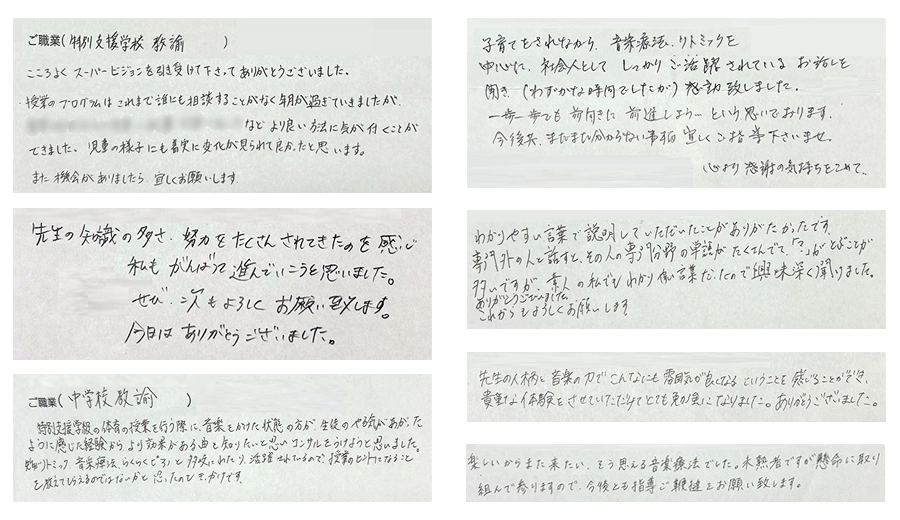 ご職業(特別支援学校 教諭 )
こころよく スーパービジョンを引き受けて下さってありがとうございました。
授業のプログラムはこれまで誰にも相談することがなく年月が過ぎていきましたが、
など より良い方法に気が付くことが
できました。児童の様子にも着実に変化が見られて良かったと思います。
また機会がありましたら 宜しくお願いします
先生の知識の多さ、努力をたくさんされてきたのを感じ
私もがんばって進んでいこうと思いました。
ぜひ、次もよろしくお願い致します。
今日はありがとうございました。
ご職業(中学校教諭 )
特別支援学級の体育の授業を行う際に、音楽をかけた状態の方が、生徒のやる気があがった
ように感じた経験から より効果がある曲を知りたいと思いコンサルをうけようと思いました。
リトミック、音楽療法、らくらくピアノと多岐にわたり、活躍されているので、授業のヒントになること
を教えてもらえるのではないかと思ったのがきっかけです。
子育てをされながら、音楽療法、リトミックを
中心に、社会人として しっかりご活躍されている お話しを
聞き(わずかな時間でしたが)感動致しました。
一歩一歩でも前向きに前進しようーという思いでおります。
今後共、まだまだ分からない事柄 宜しくご指導下さいませ。
心より感謝の気持ちをこめて、
わかりやすい言葉で説明していただいたことがありがたかったです。
専門外の人と話すと、その人の専門分野の単語がたくさんでて「?」がとぶことが
多いですが、素人の私でもわかり易い言葉だったので興味深く聞けました。
ありがとうございました。
これからもよろしくお願いします
先生の人柄と音楽の力でこんなにも雰囲気が良くなるということを感じることができ、
貴重な体験をさせていただけてとても勉強になりました。ありがとうございました。
楽しいからまた来たい、そう思える音楽療法でした。未熟者ですが懸命に取り
組んで参りますので、今後とも指導ご鞭撻をお願い致します。